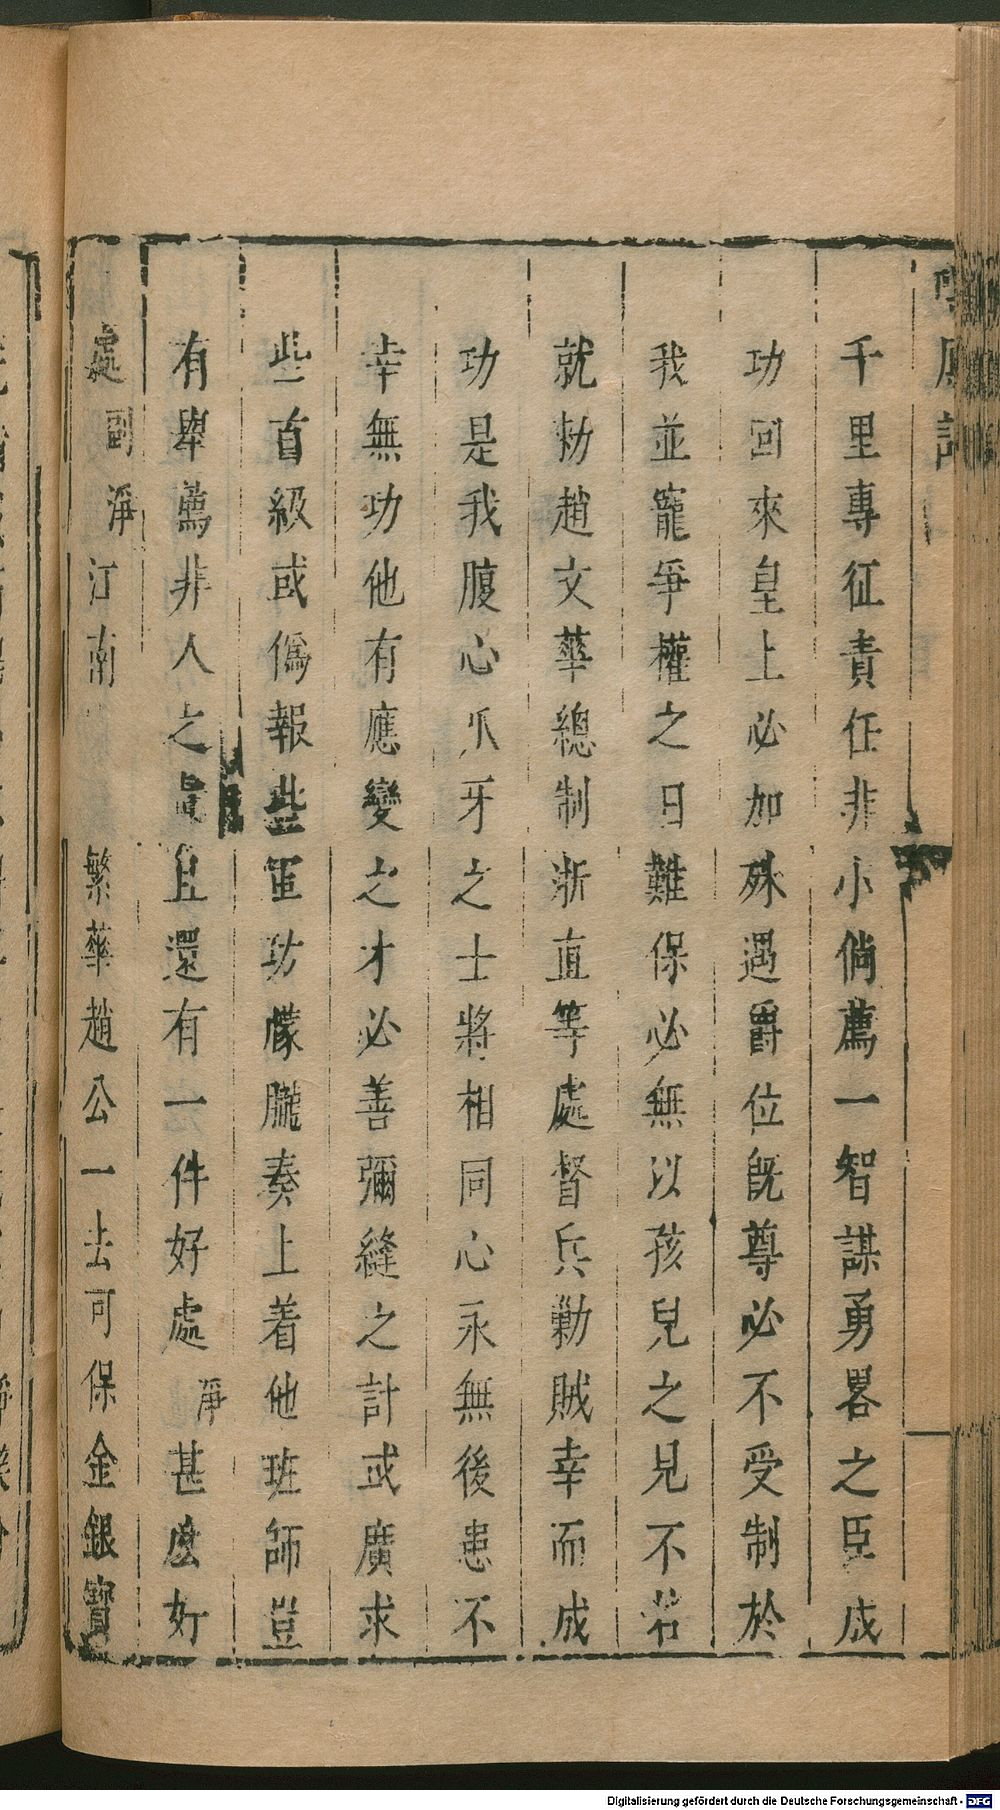 千里專征責任非小倘薦一智謀勇畧之臣成
功回來皇上必加殊遇爵位旣尊必不受制於
我並寵爭權之日難保必無以孩兒之見不若
就勑趙文華總制浙直等處督兵勦賊幸而成
功是我腹心爪牙之士將相同心永無後患不
幸無功他有應變之才必善彌縫之計或廣求
些首級或僞報些軍功朦朧奏上着他班師豈
有舉薦非人之責且還有一件好處 淨 甚麽好
處 副淨 江南 繁華趙公一去可保金銀寳
Digitalisierung gefördert durch die Deutsche Forschungsgemeinschaft - DFG